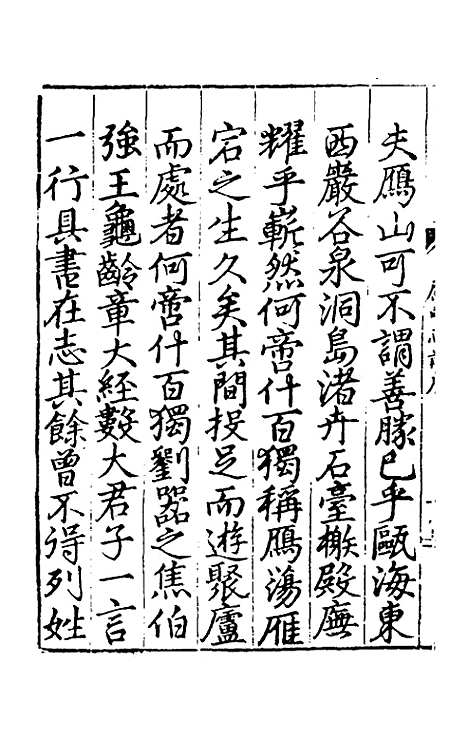 夫鴈山可不謂善勝已乎甌海東
西巖谷泉洞島渚卉石臺榭殿廡
耀乎嶄然何啻什百獨稱鴈蕩雁
宕之生久矣其間投足而遊聚廬
而處者何啻什百獨劉器之焦伯
強王龜齡章大經數大君子一言
一行具書在志其餘曾不得列姓